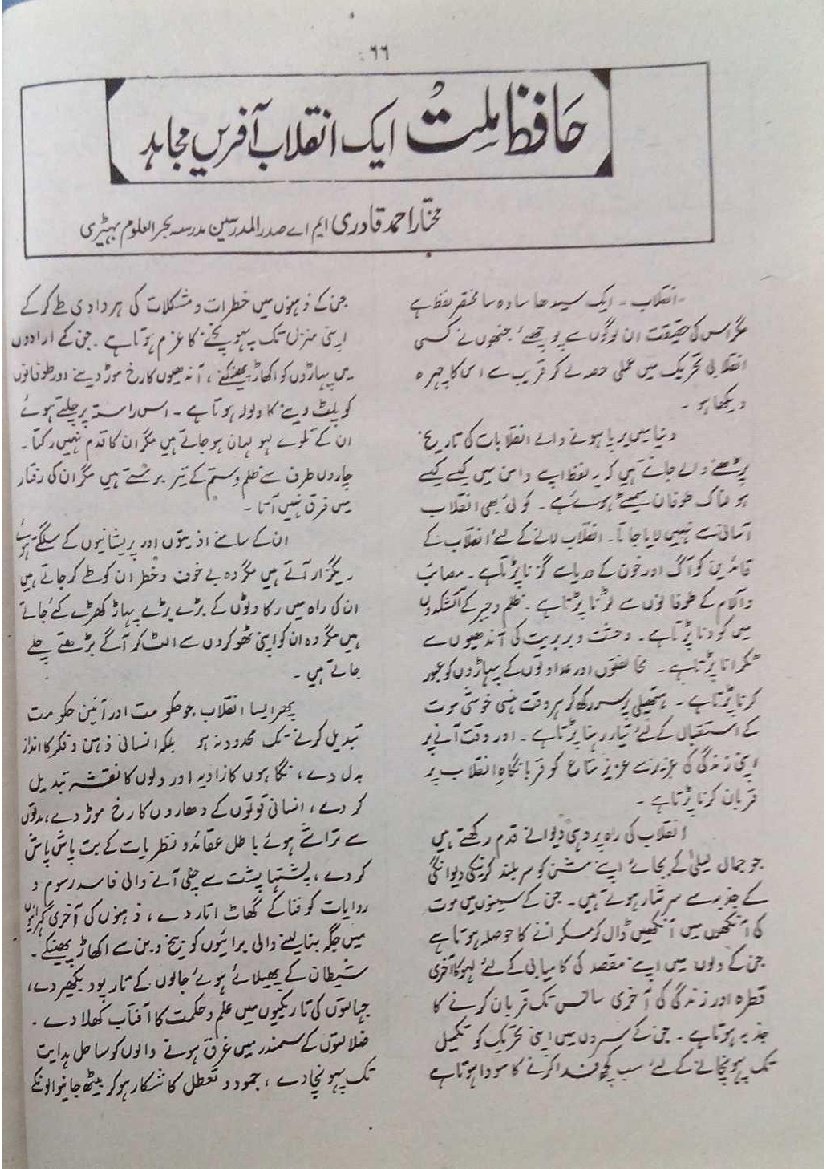 ٦٦
حافظ ملت ایک انقلاب آفریں مجاہد
مختار احمد قادری ایم اے صدر المدرسین مدرسہ بحر العلوم بہیڑی
انقلاب ۔ ایک سیدھا سادہ سا مختصر لفظ ہے
مگر اس کی حقیقت ان لوگوں سے پوچھئے جنھوں نے کسی
انقلابی تحریک میں عملی حصہ لے کر قریب سے اس کا چہرہ
دیکھا ہو ۔
دنیا میں برپا ہونے والے انقلابات کی تاریخ
پڑھنے والے جانتے ہیں کہ یہ لفظ اپنے دامن میں کیسے کیسے
ہولناک طوفان سمیٹے ہوئے ہے ۔ کوئی بھی انقلاب
آسانی سے نہیں لایا جاتا ۔ انقلاب لانے کے لئے انقلاب کے
قائدین کو آگ اور خون کے دریا سے گزرنا پڑتا ہے ۔ مصائب
و آلام کے طوفانوں سے لڑنا پڑتا ہے ۔ ظلم و جبر کے آتشکدوں
میں کودنا پڑتا ہے ۔ وحشت و بربریت کی آندھیوں سے
ٹکرانا پڑتا ہے ۔ مخالفتوں اور عداوتوں کے پہاڑوں کو عبور
کرنا پڑتا ہے ۔ ہتھیلی پر سر رکھ کر ہر وقت ہنسی خوشی موت
کے استقبال کے لئے تیار رہنا پڑتا ہے ۔ اور وقت آنے پر
اپنی زندگی کی عزیز سے عزیز متاع کو قربانگاہِ انقلاب پر
قربان کرنا پڑتا ہے ۔
انقلاب کی راہ پر وہی دیوانے قدم رکھتے ہیں
جو جمال لیلیٰ کے بجائے اپنے مشن کو سر بلند کرنیکی دیوانگی
کے جذبہ سے سرشار ہوتے ہیں ۔ جن کے سینوں میں موت
کی آنکھوں میں آنکھیں ڈال کر مسکرانے کا حوصلہ ہوتا ہے
جن کے دلوں میں اپنے مقصد کی کامیابی کے لئے لہو کا آخری
قطرہ اور زندگی کی آخری سانس تک قربان کرنے کا
جذبہ ہوتا ہے ۔ جن کے سروں میں اپنی تحریک کو تکمیل
تک پہونچانے کے لئے سب کچھ فدا کرنے کا سودا ہوتا ہے
جن کے ذہنوں میں خطرات و مشکلات کی ہر وادی طے کر کے
اپنی منزل تک پہونچنے کا عزم ہوتا ہے ۔ جن کے ارادوں
میں پہاڑوں کو اکھاڑ پھینکنے ، آندھیوں کا رخ موڑ دینے اور طوفانوں
کو پلٹ دینے کا ولولہ ہوتا ہے ۔ اس راستہ پر چلتے ہوئے
ان کے تلوے لہو لہان ہو جاتے ہیں مگر ان کا قدم نہیں رکتا ۔
چاروں طرف سے ظلم و ستم کے تیر برستے ہیں مگر ان کی رفتار
میں فرق نہیں آتا ۔
ان کے سامنے اذیتوں اور پریشانیوں کے سلگتے ہوئے
ریگزار آتے ہیں مگر وہ بے خوف و خطر ان کو طے کر جاتے ہیں
ان کی راہ میں رکاوٹوں کے بڑے بڑے پہاڑ کھڑے کئے جاتے
ہیں مگر وہ ان کو اپنی ٹھوکروں سے الٹ کر آگے بڑھتے چلے
جاتے ہیں ۔
پھر ایسا انقلاب جو حکومت اور آئین حکومت
تبدیل کرنے تک محدود نہ ہو بلکہ انسانی ذہن و فکر کا انداز
بدل دے ، نگاہوں کا زاویہ اور دلوں کا نقشہ تبدیل
کر دے ، انسانی قوتوں کے دھاروں کا رخ موڑ دے ، مدتوں
سے تراشے ہوئے باطل عقائد و نظریات کے بت پاش پاش
کر دے ، پشتہا پشت سے چلی آنے والی فاسد رسوم و
روایات کو فنا کے گھاٹ اتار دے ، ذہنوں کی آخری گہرائیوں
میں جگہ بنا لینے والی برائیوں کو بیخ و بن سے اکھاڑ پھینکے ۔
شیطان کے پھیلائے ہوئے جالوں کے تار پود بکھیر دے ،
جہالتوں کی تاریکیوں میں علم و حکمت کا آفتاب کھلا دے ۔
ضلالتوں کے سمندر میں غرق ہونے والوں کو ساحل ہدایت
تک پہونچا دے ، جمود و تعطل کا شکار ہو کر بیٹھ جانیوالوں کے